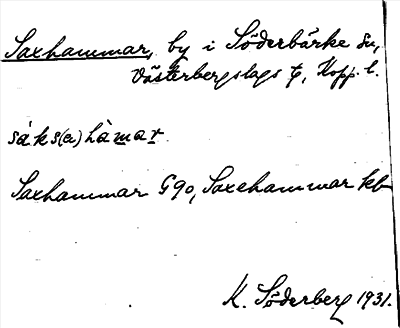 Saxhammar, by i Söderbärke sn,
Västerbergslags t, Kopp. l.
sàks(a)hàmar
Saxhammar G90, Saxehammar kb
K. Söderberg 1931.